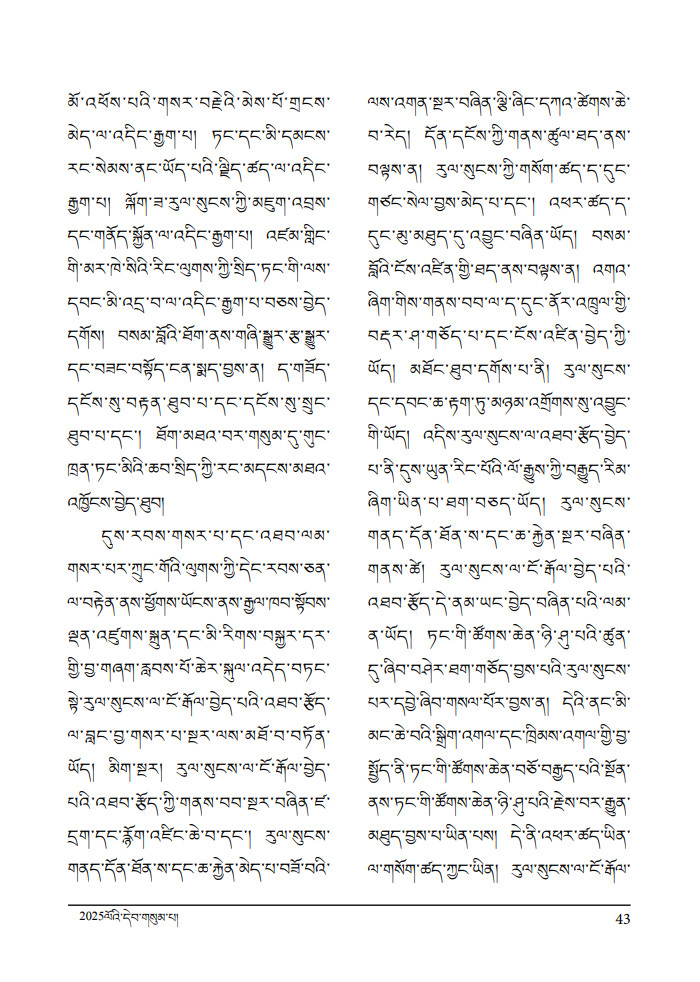 མོ་འཕོས་པའི་གསར་བརྗེའི་མེས་པོ་གྲངས་
མེད་ལ་འདིང་རྒྱག་པ། ཏང་དང་མི་དམངས་
རང་སེམས་ནང་ཡོད་པའི་ལྗིད་ཚད་ལ་འདིང་
རྒྱག་པ། ལྐོག་ཟ་རུལ་སུངས་ཀྱི་མཇུག་འབྲས་
དང་གནོད་སྐྱོན་ལ་འདིང་རྒྱག་པ། འཛམ་གླིང་
གི་མར་ཁེ་སིའི་རིང་ལུགས་ཀྱི་སྲིད་ཏང་གི་ལས་
དབང་མི་འདྲ་བ་ལ་འདིང་རྒྱག་པ་བཅས་བྱེད་
དགོས། བསམ་བློའི་ཐོག་ནས་གཞི་སྒྱུར་རྩ་སྒྱུར་
དང་བཟང་བསྟོད་ངན་སྨད་བྱས་ན། ད་གཟོད་
དངོས་སུ་བརྟན་ཐུབ་པ་དང་དངོས་སུ་སྲུང་
ཐུབ་པ་དང་། ཐོག་མཐའ་བར་གསུམ་དུ་གུང་
ཁྲན་ཏང་མིའི་ཆབ་སྲིད་ཀྱི་རང་མདངས་མཐའ་
འཁྱོངས་བྱེད་ཐུབ།
དུས་རབས་གསར་པ་དང་འཐབ་ལམ་
གསར་པར་ཀྲུང་གོའི་ལུགས་ཀྱི་དེང་རབས་ཅན་
ལ་བརྟེན་ནས་ཕྱོགས་ཡོངས་ནས་རྒྱལ་ཁབ་སྟོབས་
ལྡན་འཛུགས་སྐྲུན་དང་མི་རིགས་བསྐྱར་དར་
གྱི་བྱ་གཞག་རླབས་པོ་ཆེར་སྐུལ་འདེད་བཏང་
སྟེ་རུལ་སུངས་ལ་ངོ་རྒོལ་བྱེད་པའི་འཐབ་རྩོད་
ལ་བླང་བྱ་གསར་པ་སྔར་ལས་མཐོ་བ་བཏོན་
ཡོད། མིག་སྔར། རུལ་སུངས་ལ་ངོ་རྒོལ་བྱེད་
པའི་འཐབ་རྩོད་ཀྱི་གནས་བབ་སྔར་བཞིན་ཛ་
དྲག་དང་རྙོག་འཛིང་ཆེ་བ་དང་། རུལ་སུངས་
གནད་དོན་ཐོན་ས་དང་ཆ་རྐྱེན་མེད་པ་བཟོ་བའི་
ལས་འགན་སྔར་བཞིན་ལྕི་ཞིང་དཀའ་ཚེགས་ཆེ་
བ་རེད། དོན་དངོས་ཀྱི་གནས་ཚུལ་ཐད་ནས་
བལྟས་ན། རུལ་སུངས་ཀྱི་གསོག་ཚད་ད་དུང་
གཙང་སེལ་བྱས་མེད་པ་དང་། འཕར་ཚད་ད་
དུང་མུ་མཐུད་དུ་འབྱུང་བཞིན་ཡོད། བསམ་
བློའི་ངོས་འཛིན་གྱི་ཐད་ནས་བལྟས་ན། འགའ་
ཞིག་གིས་གནས་བབ་ལ་ད་དུང་ནོར་འཁྲུལ་གྱི་
བརྡར་ཤ་གཅོད་པ་དང་ངོས་འཛིན་བྱེད་ཀྱི་
ཡོད། མཐོང་ཐུབ་དགོས་པ་ནི། རུལ་སུངས་
དང་དབང་ཆ་རྟག་ཏུ་མཉམ་འགྲོགས་སུ་འབྱུང་
གི་ཡོད། འདིས་རུལ་སུངས་ལ་འཐབ་རྩོད་བྱེད་
པ་ནི་དུས་ཡུན་རིང་པོའི་ལོ་རྒྱུས་ཀྱི་བརྒྱུད་རིམ་
ཞིག་ཡིན་པ་ཐག་བཅད་ཡོད། རུལ་སུངས་
གནད་དོན་ཐོན་ས་དང་ཆ་རྐྱེན་སྔར་བཞིན་
གནས་ཚེ། རུལ་སུངས་ལ་ངོ་རྒོལ་བྱེད་པའི་
འཐབ་རྩོད་དེ་ནམ་ཡང་བྱེད་བཞིན་པའི་ལམ་
ན་ཡོད། ཏང་གི་ཚོགས་ཆེན་ཉི་ཤུ་པའི་ཚུན་
དུ་ཞིབ་བཤེར་ཐག་གཅོད་བྱས་པའི་རུལ་སུངས་
པར་དབྱེ་ཞིབ་གསལ་པོར་བྱས་ན། དེའི་ནང་མི་
མང་ཆེ་བའི་སྒྲིག་འགལ་དང་ཁྲིམས་འགལ་གྱི་བྱ་
སྤྱོད་ནི་ཏང་གི་ཚོགས་ཆེན་བཅོ་བརྒྱད་པའི་སྔོན་
ནས་ཏང་གི་ཚོགས་ཆེན་ཉི་ཤུ་པའི་རྗེས་བར་རྒྱུན་
མཐུད་བྱས་པ་ཡིན་པས། དེ་ནི་འཕར་ཚད་ཡིན་
ལ་གསོག་ཚད་ཀྱང་ཡིན། རུལ་སུངས་ལ་ངོ་རྒོལ་
2025ལོའི་དེབ་གསུམ་པ།
43